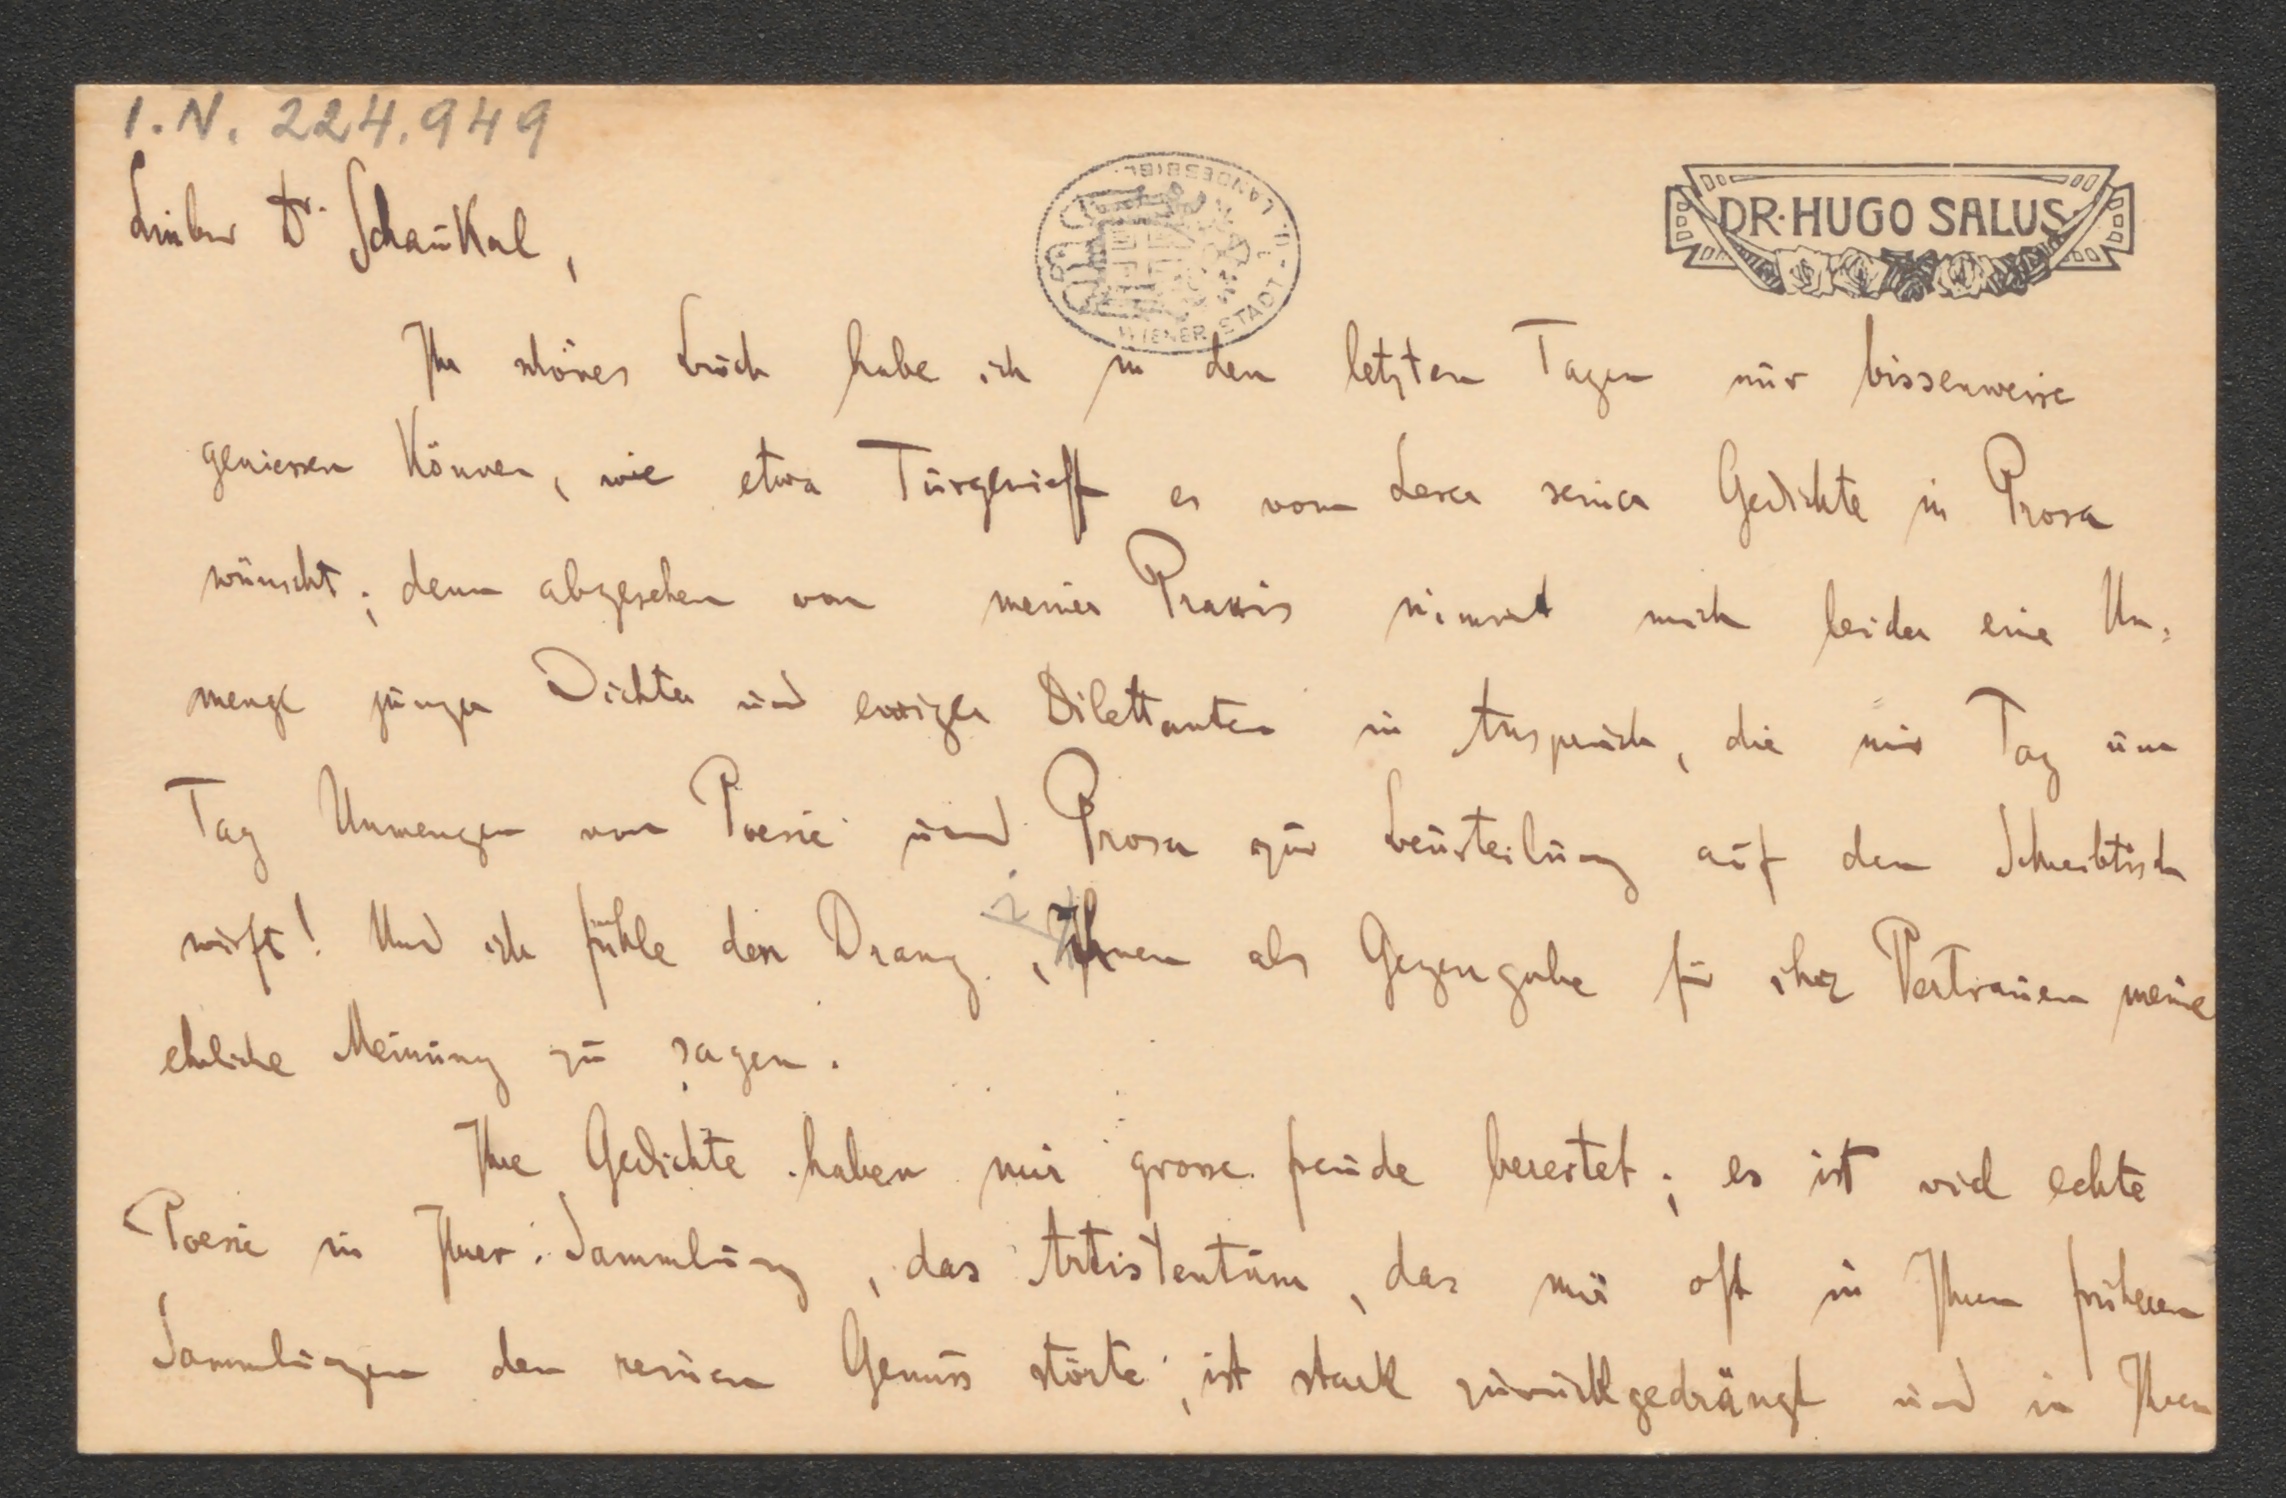 I.N. 224.949
Lieber Dr. Schaukal,
WIENER STADT- U. LANDESBIBL.
DR. HUGO SALUS
Ihr schönes Buch habe ich in den letzten Tagen nur bissenweise
geniessen können, wie etwa Turgenieff es vom Leser seiner Gedichte in Prosa
wünscht; denn abgesehen von meiner Praxis nimmt mich leider eine Un-
menge junger Dichter und ewiger Dilettanten in Anspruch, die mir Tag um
Tag Unmengen von Poesie und Prosa zur Beurteilung auf den Schreibtisch
wirft! Und ich fühle den Drang, Ihnen als Gegengabe für ihr Vertrauen meine
ehrliche Meinung zu sagen.
Ihre Gedichte haben mir grosse Freude bereitet; es ist viel echte
Poesie in Ihrer Sammlung, das Artistentum, das mir oft in Ihren früheren
Sammlungen den reinen Genuss störte, ist stark zurückgedrängt und in Ihren